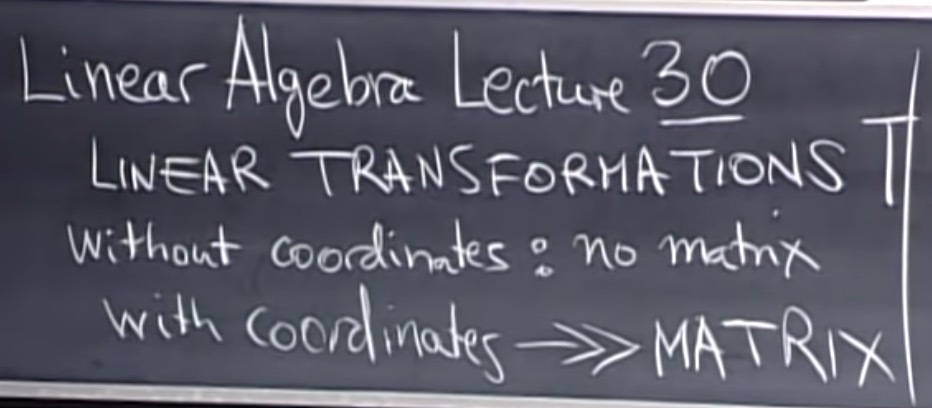 Linear Algebra Lecture 30
LINEAR TRANSFORMATIONS T
Without coordinates : no matrix
with coordinates →>> MATRIX